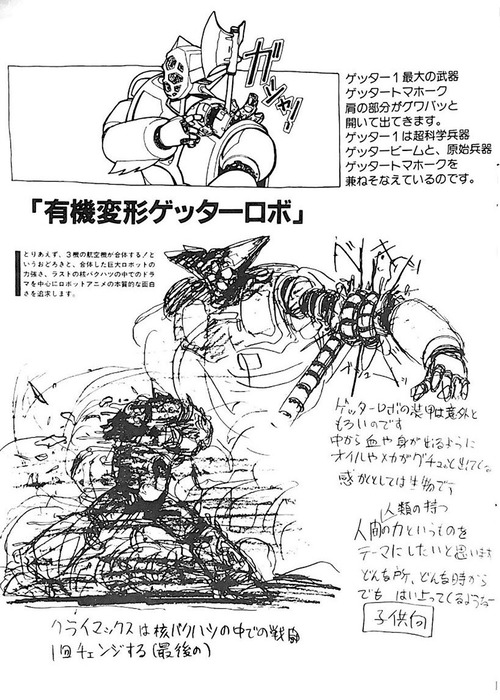 ガシャーン
ゲッター1最大の武器
ゲッタートマホーク
肩の部分がグワバッと
開いて出てきます。
ゲッター1は超科学兵器
ゲッタービームと、原始兵器
ゲッタートマホークを
兼ねそなえているのです。
「有機変形ゲッターロボ」
とりあえず、3機の航空機が合体する!と
いうおどろきと、合体した巨大ロボットの
力強さ、ラストの核バクハツの中でのドラ
マを中心にロボットアニメの本質的な面白
さを追求します。
ゲッターロボの装甲は意外と
もろいのです
中から血や身が出るように
オイルやメカがグチュッと出てくる
感かくとしては生物です
人類の持つ
人間の力というものを
テーマにしたいと思います
どんな所、どんな時から
でも はい上ってくるような
子供向
クライマックスは核バクハツの中での戦闘
1回チェンジする(最後の)